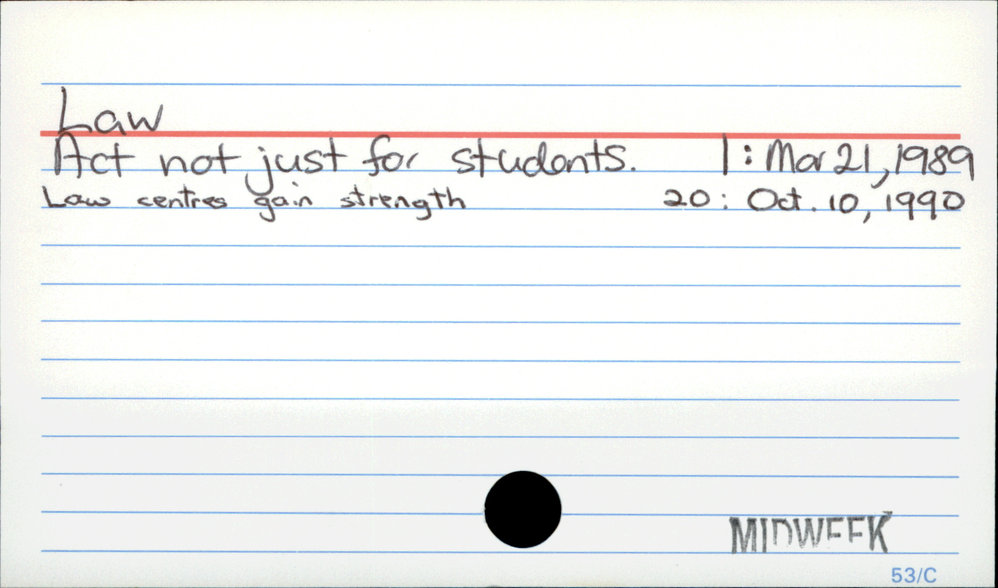 Law
Act not just for students. 1: Mar 21, 1989
Law centres gain strength 20: Oct. 10, 1990
MIDWEEK
53/C